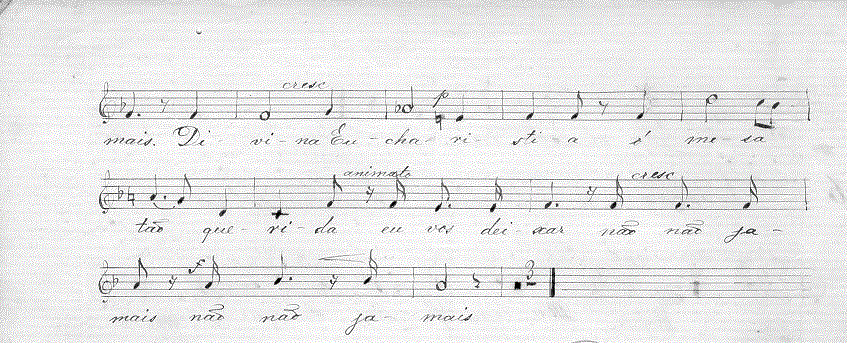 cresc
p
mais. Di - vi - na Eu - cha - ri - sti - a é me - sa
animato cresc
tão que - ri - da eu vos dei - xar não não ja -
f 3
mais não não ja - mais